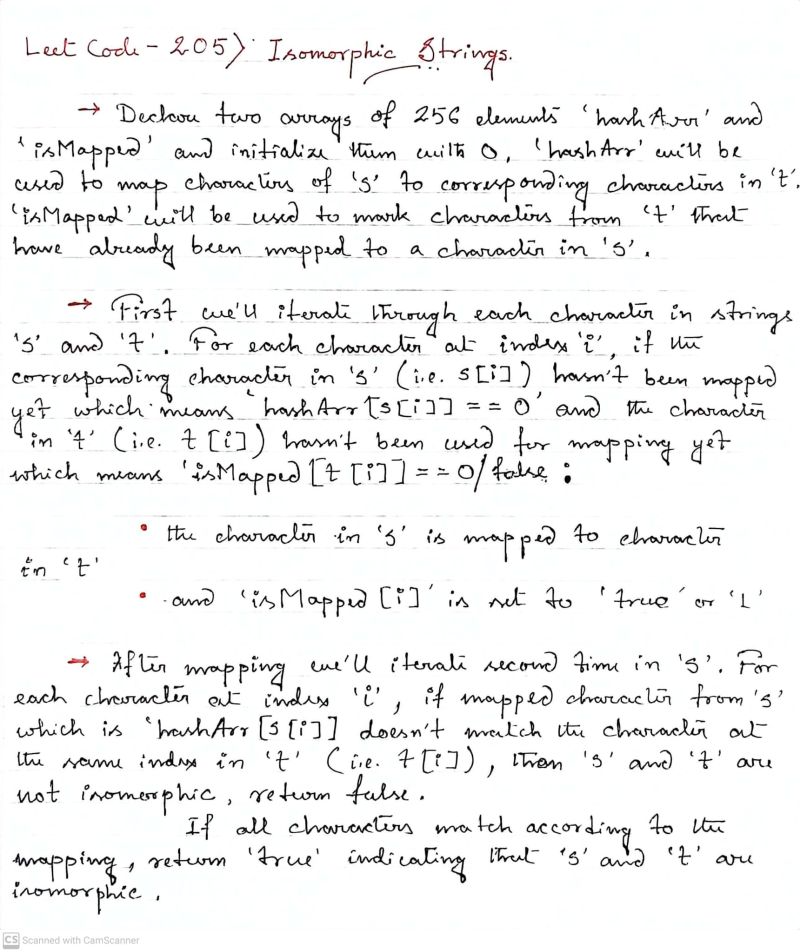 Leet Code - 205) Isomorphic Strings.
→ Declare two arrays of 256 elements 'hashArr' and
'isMapped' and initialize them with 0, 'hashArr' will be
used to map characters of 's' to corresponding characters in 't'.
'isMapped' will be used to mark characters from 't' that
have already been mapped to a character in 's'.
→ First we'll iterate through each character in strings
's' and 't'. For each character at index 'i', if the
corresponding character in 's' (i.e. s[i]) hasn't been mapped
yet which means 'hashArr[s[i]] == 0' and the character
in 't' (i.e. t[i]) hasn't been used for mapping yet
which means 'isMapped[t[i]] == 0/false :
• the character in 's' is mapped to character
in 't'
• and 'isMapped[i]' is set to 'true' or '1'
→ After mapping we'll iterate second time in 's'. For
each character at index 'i', if mapped character from 's'
which is 'hashArr[s[i]] doesn't match the character at
the same index in 't' (i.e. t[i]), then 's' and 't' are
not isomorphic, return false.
If all characters match according to the
mapping, return 'true' indicating that 's' and 't' are
isomorphic.
CS Scanned with CamScanner